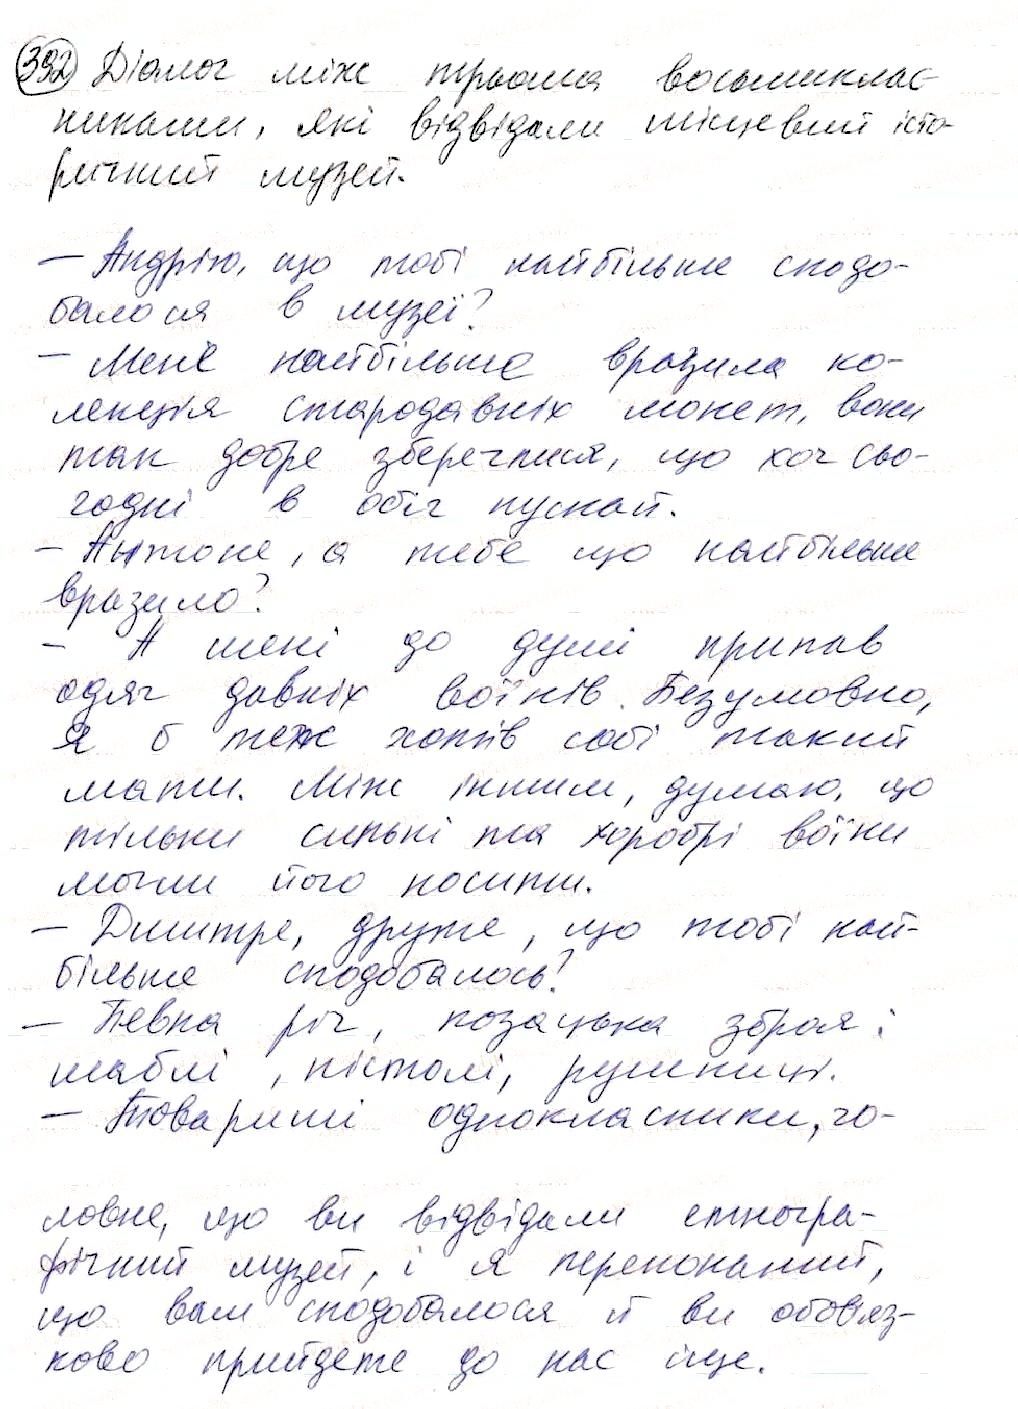 392 Діалог між трьома восьмиклас-
никами, які відвідали місцевий істо-
ричний музей.
— Андрію, що тобі найбільше сподо-
балося в музеї?
— Мене найбільше вразила ко-
лекція стародавніх монет, вони
так добре збереглися, що хоч сьо-
годні в обіг пускай.
— Антоне, а тебе що найбільше
вразило?
— А мені до душі припав
одяг давніх воїнів. Безумовно,
я б теж хотів собі такий
мати. Між іншим, думаю, що
тільки сильні та хоробрі воїни
могли його носити.
— Дмитре, друже, що тобі най-
більше сподобалось?
— Певна річ, козацька зброя:
шаблі, пістолі, рушниці.
— Товариші однокласники, го-
ловне, що ви відвідали етногра-
фічний музей, і я переконаний,
що вам сподобалося й ви обов'яз-
ково прийдете до нас іще.